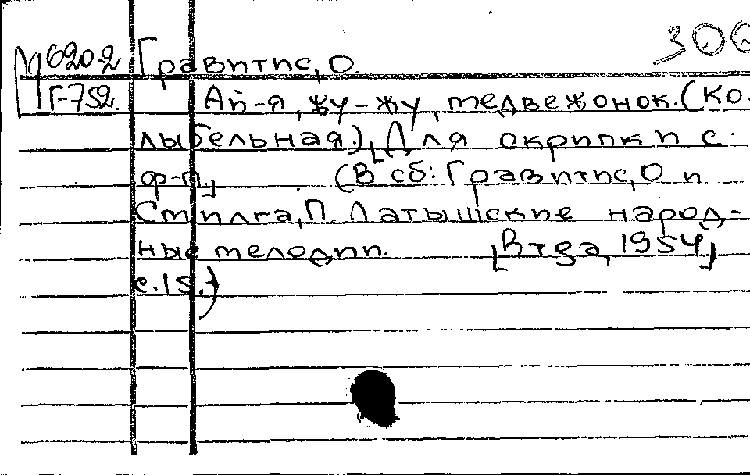 306
М620-2 Гравитис, О.
Г-752. Ай-я, жу-жу, медвежонок. (Ко-
лыбельная). [Для скрипки с
ф-п.] (В сб: Гравитис, О и
Стилга, П. Латышские народ-
ные мелодии. 1954]
с. 15.)